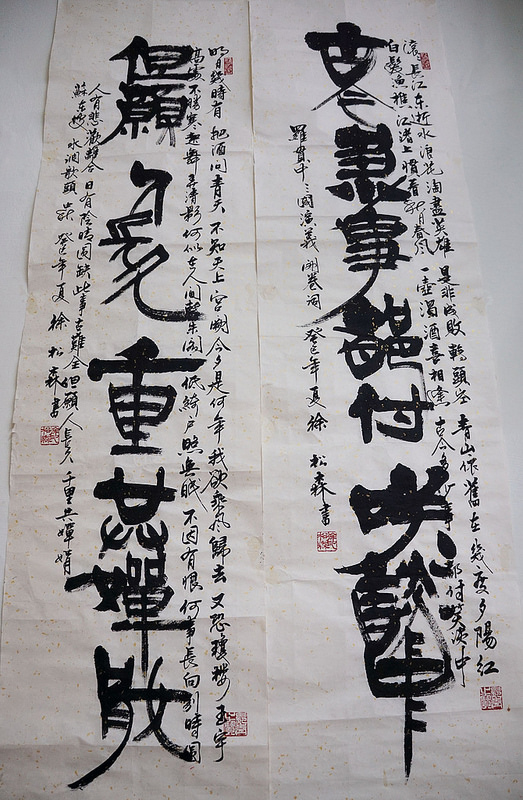 古今萬事都付笑談中
滾滾長江東逝水 浪花淘盡英雄 是非成敗轉頭空 青山依舊在 幾度夕陽紅
白髮漁樵江渚上 慣看秋月春風 一壺濁酒喜相逢 古今多少事 都付笑談中
羅貫中三國演義開卷詞 癸巳年夏 徐松森書
但願人長久千里共嬋娟
明月幾時有 把酒問青天 不知天上宮闕 今夕是何年 我欲乘風歸去 又恐瓊樓玉宇
高處不勝寒 起舞弄清影 何似在人間 轉朱閣 低綺戶 照無眠 不因有恨 何事長向別時圓
人有悲歡離合 月有陰晴圓缺 此事古難全 但願人長久 千里共嬋娟
蘇東坡 水調歌頭 癸巳年夏 徐松森書